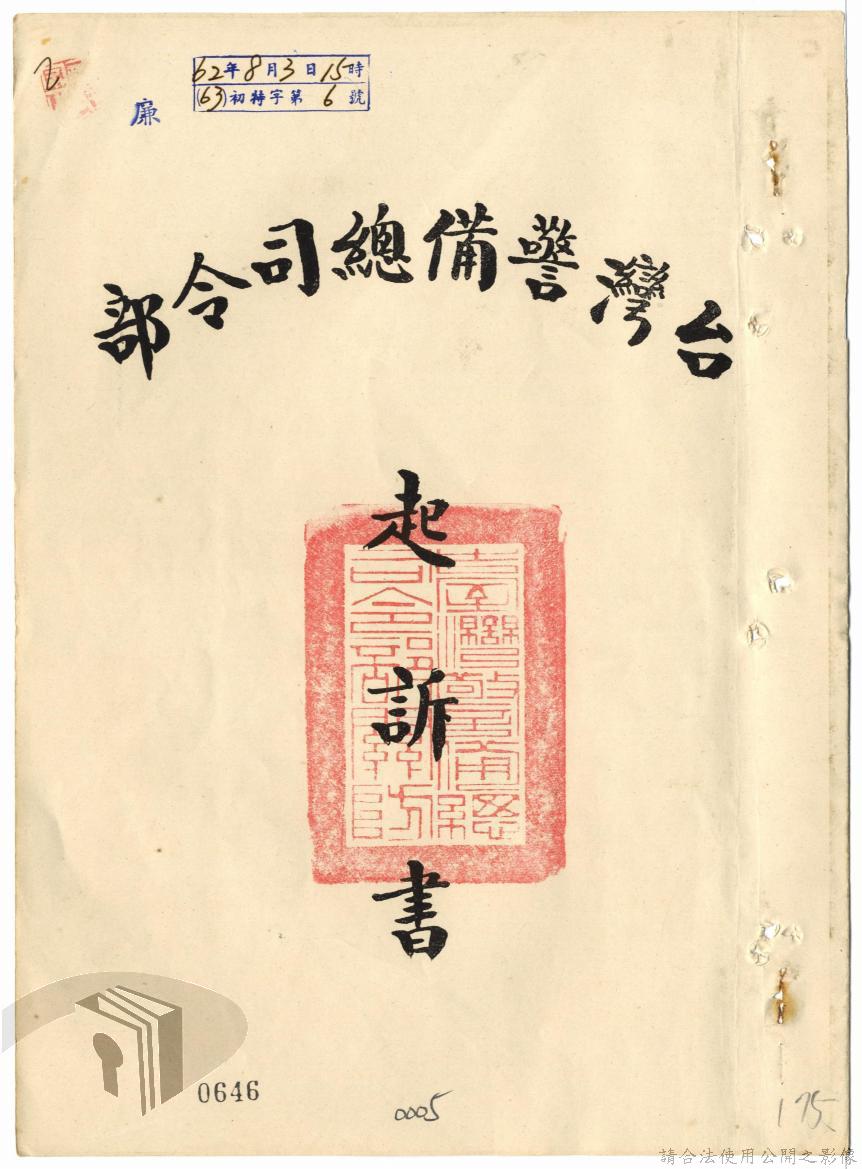 62年8月3日15時
(63)初特字第6號
廉
台灣警備總司令部
起訴書
臺灣警備總
司令部關防
0646
0005
175
請合法使用公開之影像